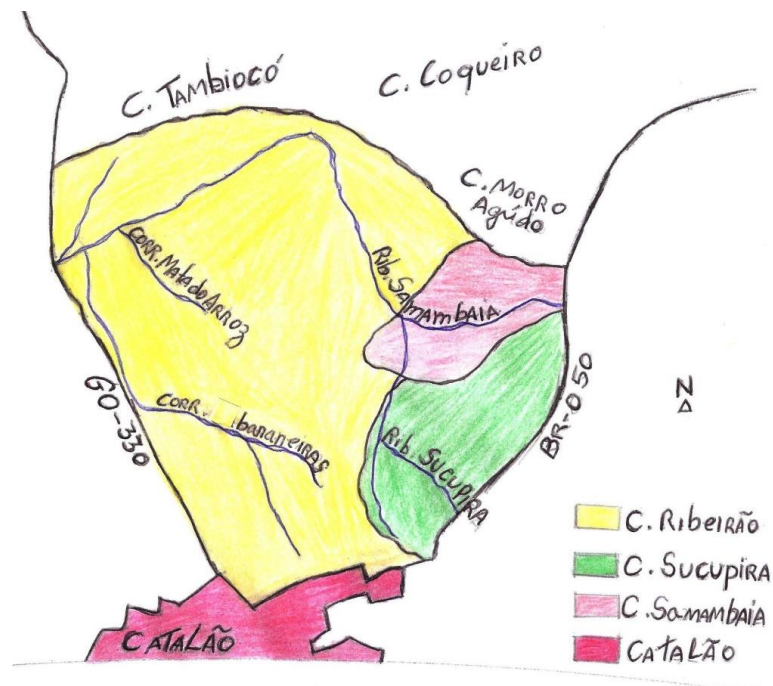 C. TAMBIOCÓ
C. COQUEIRO
C. MORRO
Agudo
CORR. Mata do ARROZ
Rib. SAMAMBAIA
GO-330
CORR. bananeiras
Rib. SUCUPIRA
BR-050
N
C. RibeiRÃO
C. SUCUPIRA
C. SAMAMBAIA
CATALÃO
CATALÃO